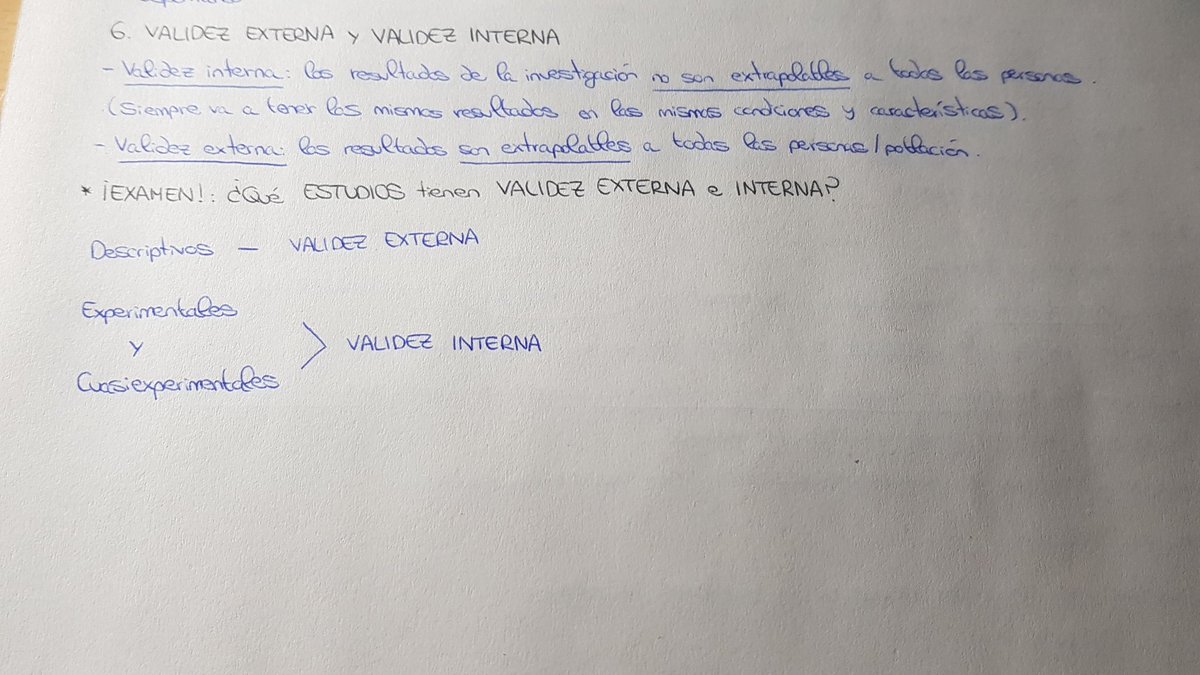 6. VALIDEZ EXTERNA y VALIDEZ INTERNA
- Validez interna: los resultados de la investigación no son extrapolables a todas las personas.
(Siempre va a tener los mismos resultados en las mismas condiciones y características).
- Validez externa: los resultados son extrapolables a todas las personas/población.
* ¡EXAMEN!: ¿Qué ESTUDIOS tienen VALIDEZ EXTERNA e INTERNA?
Descriptivos — VALIDEZ EXTERNA
Experimentales
y
> VALIDEZ INTERNA
Cuasiexperimentales